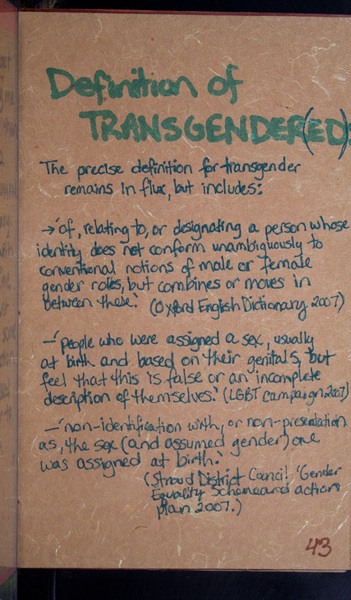 Definition of
TRANSGENDER(ED).
The precise definition for transgender
remains in flux, but includes:
→ 'of, relating to, or designating a person whose
identity does not conform unambiguously to
conventional notions of male or female
gender roles, but combines or moves in
between these.' (Oxford English Dictionary 2007)
– 'people who were assigned a sex, usually
at birth and based on their genitals, but
feel that this is false or an incomplete
description of themselves.' (LGBT campaign 2007)
– 'non-identification with, or non-presentation
as, the sex (and assumed gender) one
was assigned at birth.'
(Stroud District Council 'Gender
Equality Scheme and action
plan 2007.)
43